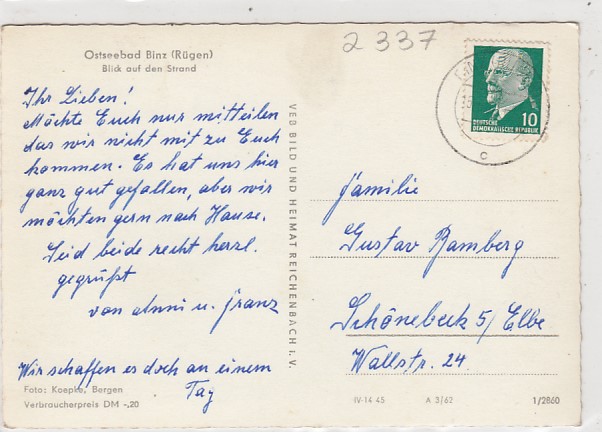 2337
Ostseebad Binz (Rügen)
Blick auf den Strand
Ihr Lieben!
Möchte Euch nur mitteilen
das wir nicht mit zu Euch
kommen. Es hat uns hier
ganz gut gefallen, aber wir
möchten gern nach Hause.
Seid beide recht herzl.
gegrüßt
von Anni u. Franz
Wir schaffen es doch an einem
Tag
Foto: Koepke, Bergen
Verbraucherpreis DM -,20
VEB BILD UND HEIMAT REICHENBACH I. V.
10
DEUTSCHE
DEMOKRATISCHE REPUBLIK
c
Familie
Gustav Bamberg
Schönebeck 5/ Elbe
Wallstr. 24
IV-14 45 A 3/62 1/2860